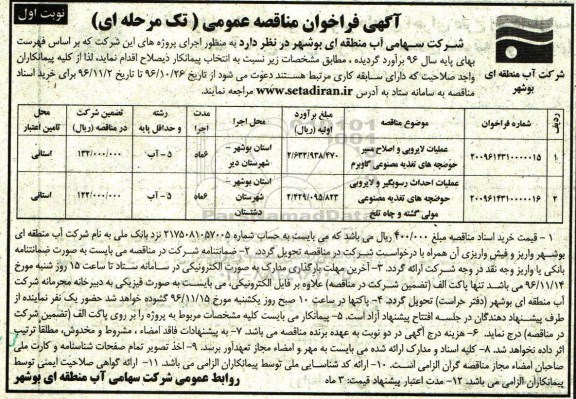 نوبت اول
آگهی فراخوان مناقصه عمومی ( تک مرحله ای)
شرکت آب منطقه ای بوشهر
شرکت سهامی آب منطقه ای بوشهر در نظر دارد به منظور اجرای پروژه های این شرکت که بر اساس فهرست
بهای پایه سال ۹۶ برآورد گردیده ، مطابق مشخصات زیر نسبت به انتخاب پیمانکار ذیصلاح اقدام نماید، لذا از کلیه پیمانکاران
واجد صلاحیت که دارای سابقه کاری مرتبط هستند دعوت می شود از تاریخ ۹۶/۱۰/۲۶ تا تاریخ ۹۶/۱۱/۲ برای خرید اسناد
مناقصه به سامانه ستاد به آدرس www.setadiran.ir مراجعه نمایند.
ردیف | شماره فراخوان | موضوع مناقصه | مبلغ برآورد اولیه (ریال) | محل اجرا | مدت اجرا | رشته و حداقل پایه | تضمین شرکت در مناقصه (ریال) | محل تامین اعتبار
۱ | ۲۰۰۹۶۱۴۳۱۰۰۰۰۰۱۵ | عملیات لایروبی و اصلاح مسیر حوضچه های تغذیه مصنوعی گاوبرم | ۲/۶۳۲/۹۳۸/۲۷۰ | استان بوشهر – شهرستان دیر | ۶ماه | ۵ - آب | ۱۳۲/۰۰۰/۰۰۰ | استانی
۲ | ۲۰۰۹۶۱۴۳۱۰۰۰۰۰۱۶ | عملیات احداث رسوبگیر و لایروبی حوضچه های تغذیه مصنوعی مولی گشته و چاه تلخ | ۲/۴۲۹/۰۹۵/۸۲۳ | استان بوشهر – شهرستان دشتستان | ۶ماه | ۵ - آب | ۱۲۲/۰۰۰/۰۰۰ | استانی
۱ - قیمت خرید اسناد مناقصه مبلغ ۴۰۰/۰۰۰ ریال می باشد که می بایست به حساب شماره ۲۱۷۵۰۸۱۰۵۷۰۰۵ نزد بانک ملی به نام شرکت آب منطقه ای
بوشهر واریز و فیش واریزی آن همراه با درخواست شرکت در مناقصه تحویل گردد. ۲- ضمانتنامه شرکت در مناقصه می بایست به صورت ضمانتنامه
بانکی یا واریز وجه نقد در وجه شرکت ارائه گردد. ۳- آخرین مهلت بارگذاری مدارک به صورت الکترونیکی در سامانه ستاد تا ساعت ۱۵ روز شنبه مورخ
۹۶/۱۱/۱۴ می باشد تنها پاکت الف (تضمین شرکت در مناقصه) علاوه بر فایل الکترونیکی، می بایست به صورت فیزیکی به دبیرخانه محرمانه شرکت
آب منطقه ای بوشهر (دفتر حراست) تحویل گردد. ۴- پاکتها در ساعت ۱۰ صبح روز یکشنبه مورخ ۹۶/۱۱/۱۵ گشوده خواهد شد حضور یک نفر نماینده از
طرف پیشنهاد دهندگان در جلسه افتتاح پیشنهاد آزاد است. ۵- پیمانکار می بایست کلیه مشخصات مربوط به پروژه را بر روی پاکت الف (تضمین شرکت
در مناقصه) درج نماید. ۶- هزینه درج آگهی در دو نوبت به عهده برنده مناقصه می باشد. ۷- به پیشنهادات فاقد امضاء ، مشروط و مخدوش، مطلقا ترتیب
اثر داده نخواهد شد. ۸- کلیه اسناد و مدارک ارائه شده می بایست به مهر و امضاء مجاز تعهدآور برسد. ۹- اخذ تصویر تمام صفحات شناسنامه و کارت ملی
صاحبان امضاء مجاز مناقصه گران الزامی است. ۱۰- ارائه کد شناسایی ملی توسط پیمانکاران الزامی می باشد. ۱۱- ارائه گواهی صلاحیت ایمنی توسط
پیمانکاران الزامی می باشد. ۱۲- مدت اعتبار پیشنهاد قیمت: ۳ ماه
روابط عمومی شرکت سهامی آب منطقه ای بوشهر